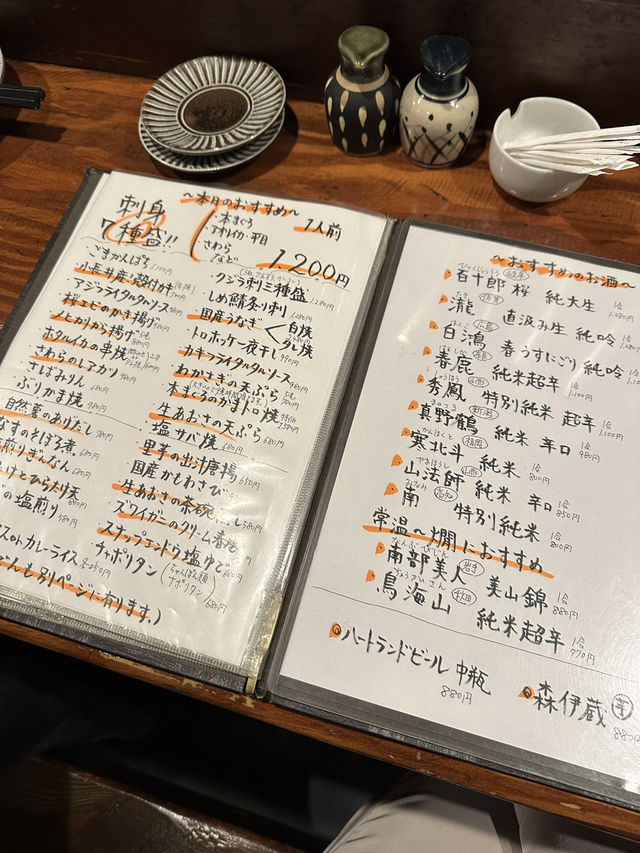 〜本日のおすすめ〜
刺身
7種盛!!
・本まぐろ
・アオリイカ・平目
・さわら
など
1人前
1200円
ごまかんぱち
小長井産・殻付カキ
アジフライタルタルソース
桜エビのかき揚げ
メヒカリから揚げ
ホタルイカの串焼
さわらのレアカツ
さばみりん 680円
ぶりかま焼 980円
自然薯のありだし
なすのそぼろ煮
煎りぎんなん 680円
の塩煎り
カレーライス
も別ページに有ります。)
クジラ刺三種盛 1,280円
しめ鯖炙り刺
国産うなぎ
白焼
タレ焼
トロホッケ一夜干し 990円
カキフライタルタルソース
わかさぎの天ぷら
本まぐろのかまトロ焼
生あおさの天ぷら
塩サバ焼 680円
里芋の出汁唐揚
国産かもわさび
生あおさの茶碗蒸し
ズワイガニのクリーム春巻
スナップエンドウ塩ゆで
チャポリタン
(ちゃんぽん麺
ナポリタン)
680円
〜おすすめのお酒〜
百十郎 桜 純大生
瀧 直汲み生 純吟
白鴻 春うすにごり 純吟
春鹿 純米超辛
秀鳳 特別純米 超辛
真野鶴 純米 辛口
寒北斗 純米
山法師 純米 辛口
南 特別純米
常温〜燗におすすめ
南部美人 美山錦
鳥海山 純米超辛
1合 770円
ハートランドビール 中瓶
880円
森伊蔵 芋